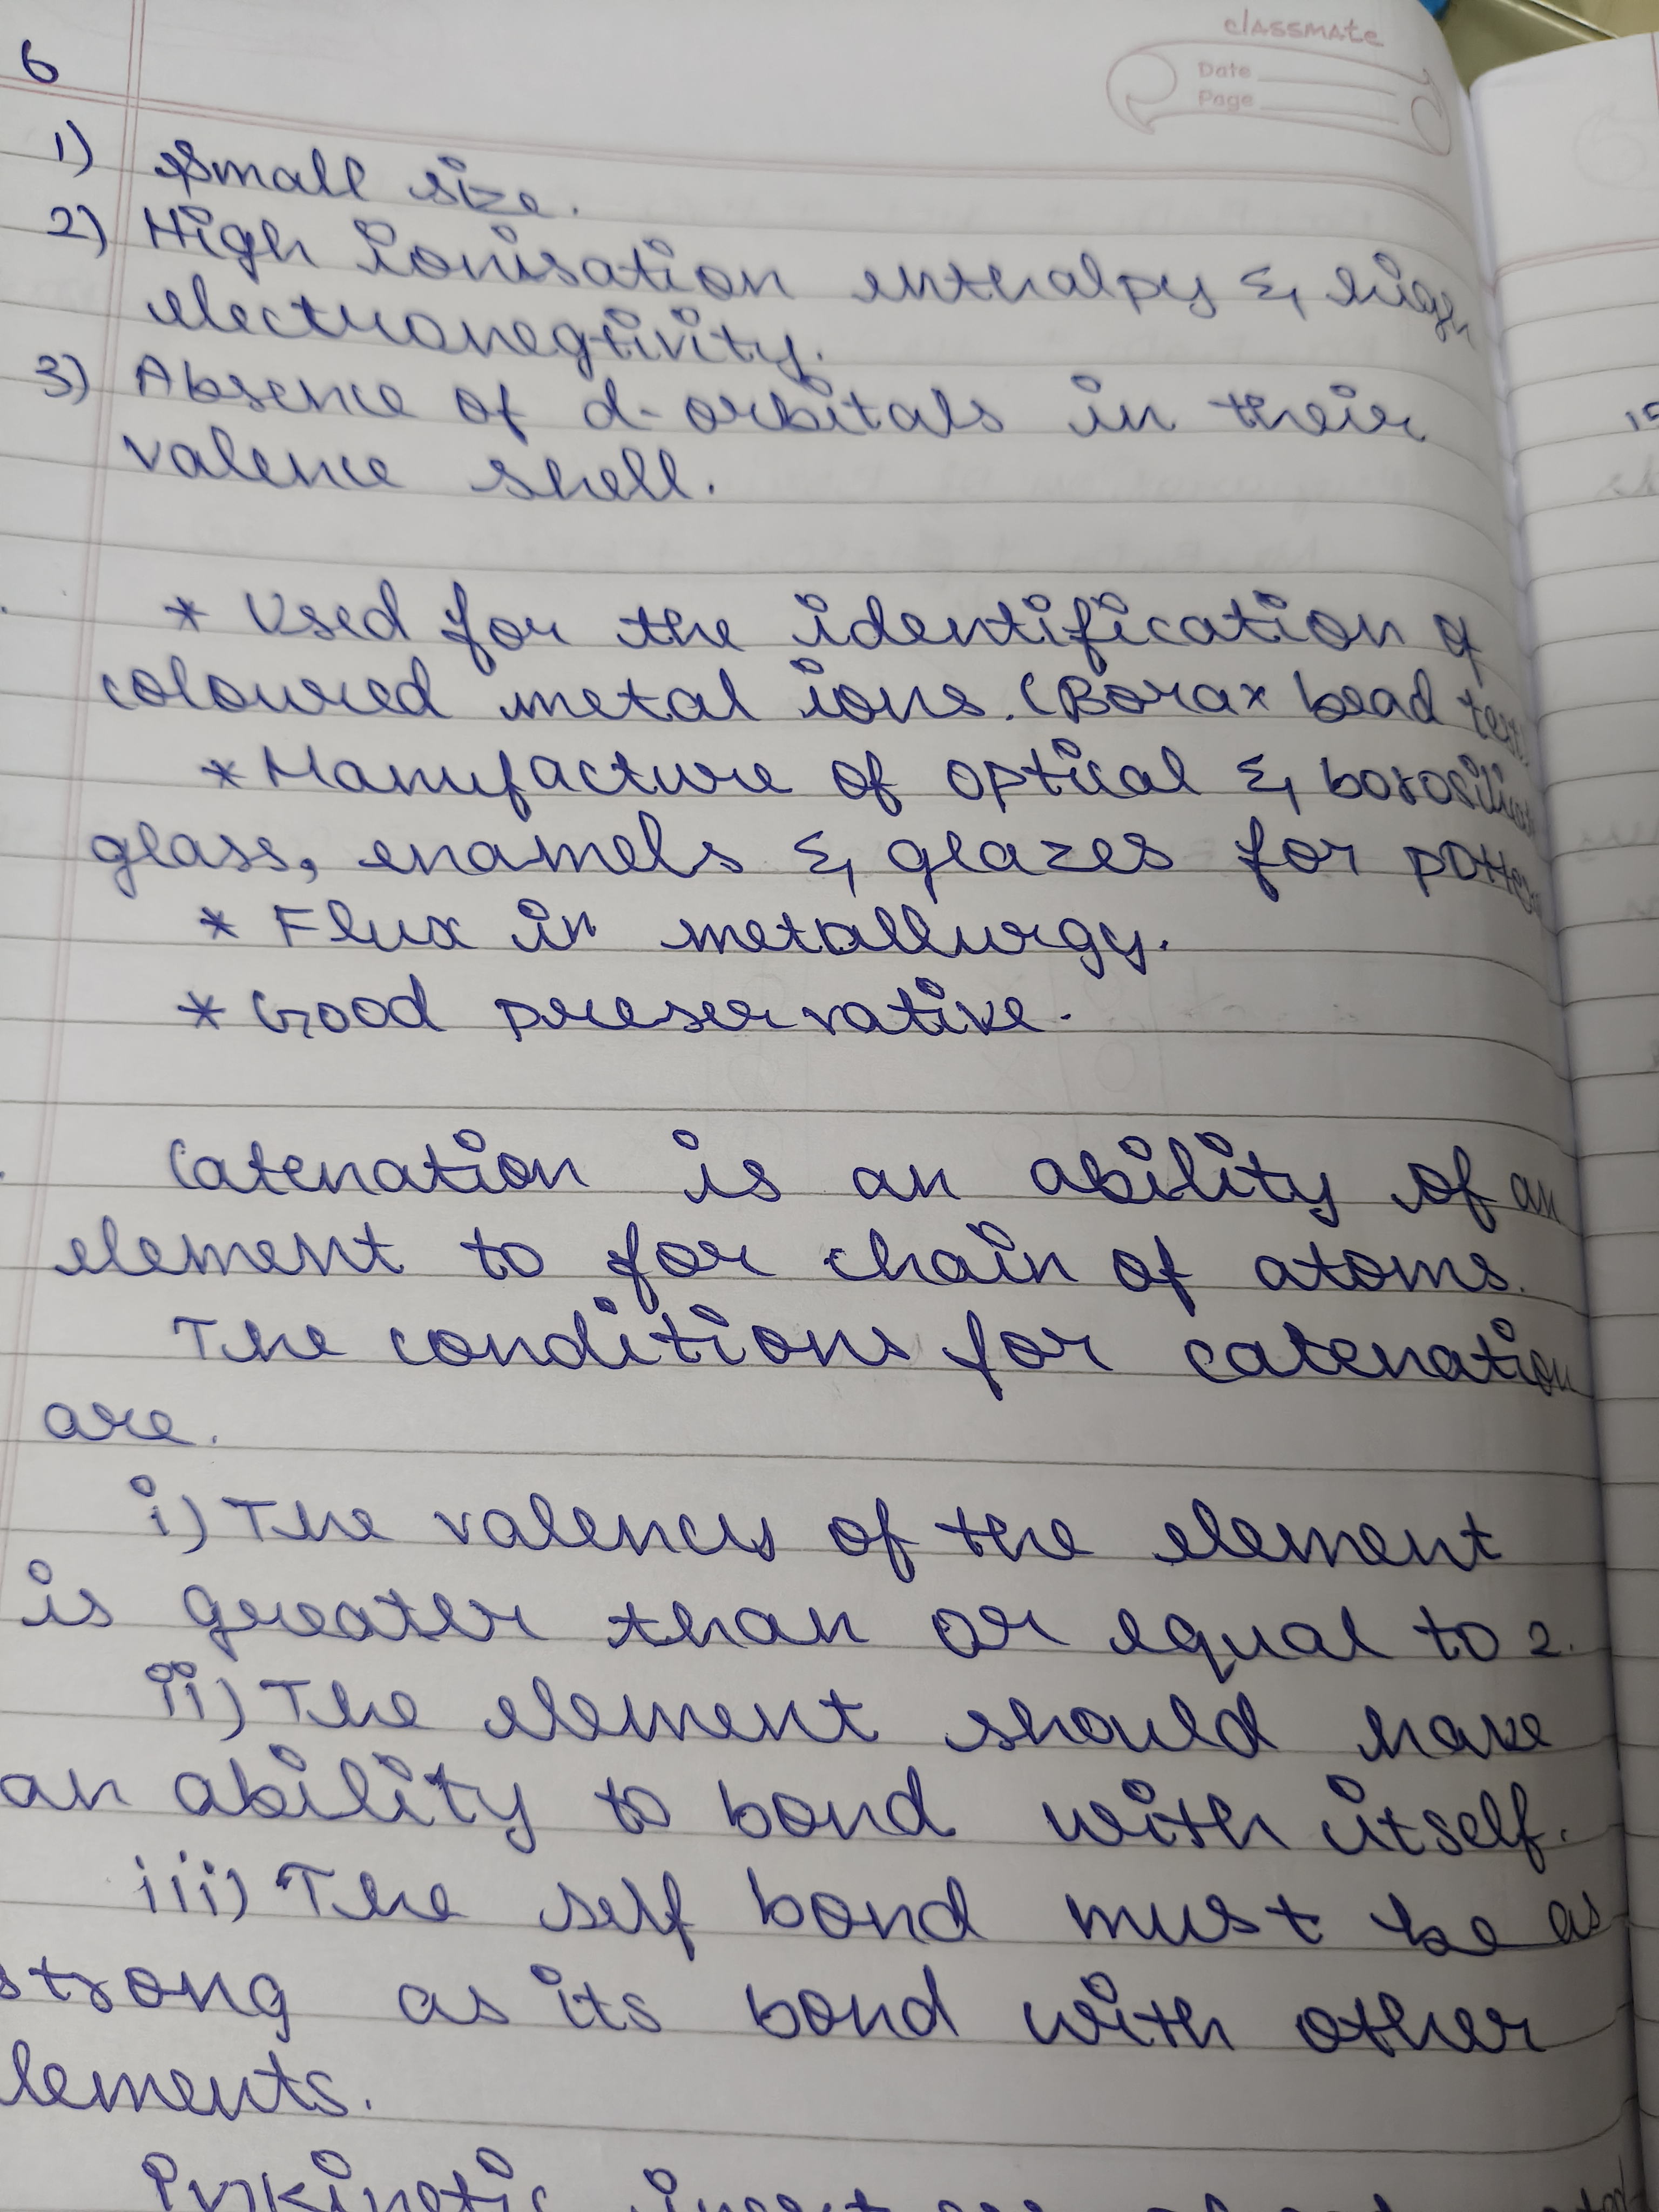 classmate
Date
Page
6
1) Small size.
2) High ionisation enthalpy & high
electronegtivity.
3) Absence of d-orbitals in their
valence shell.
* Used for the identification of
coloured metal ions. (Borax bead test
* Manufacture of optical &
glass, enamels & glazes for
* Flux in metallurgy.
* Good preservative.
Catenation is an ability of an
element to for chain of atoms.
The conditions for catenation
are.
i) The valency of the element
is greater than or equal to 2.
ii) The element should have
an ability to bond with itself.
iii) The self bond must be as
strong as its bond with other
lements.
15